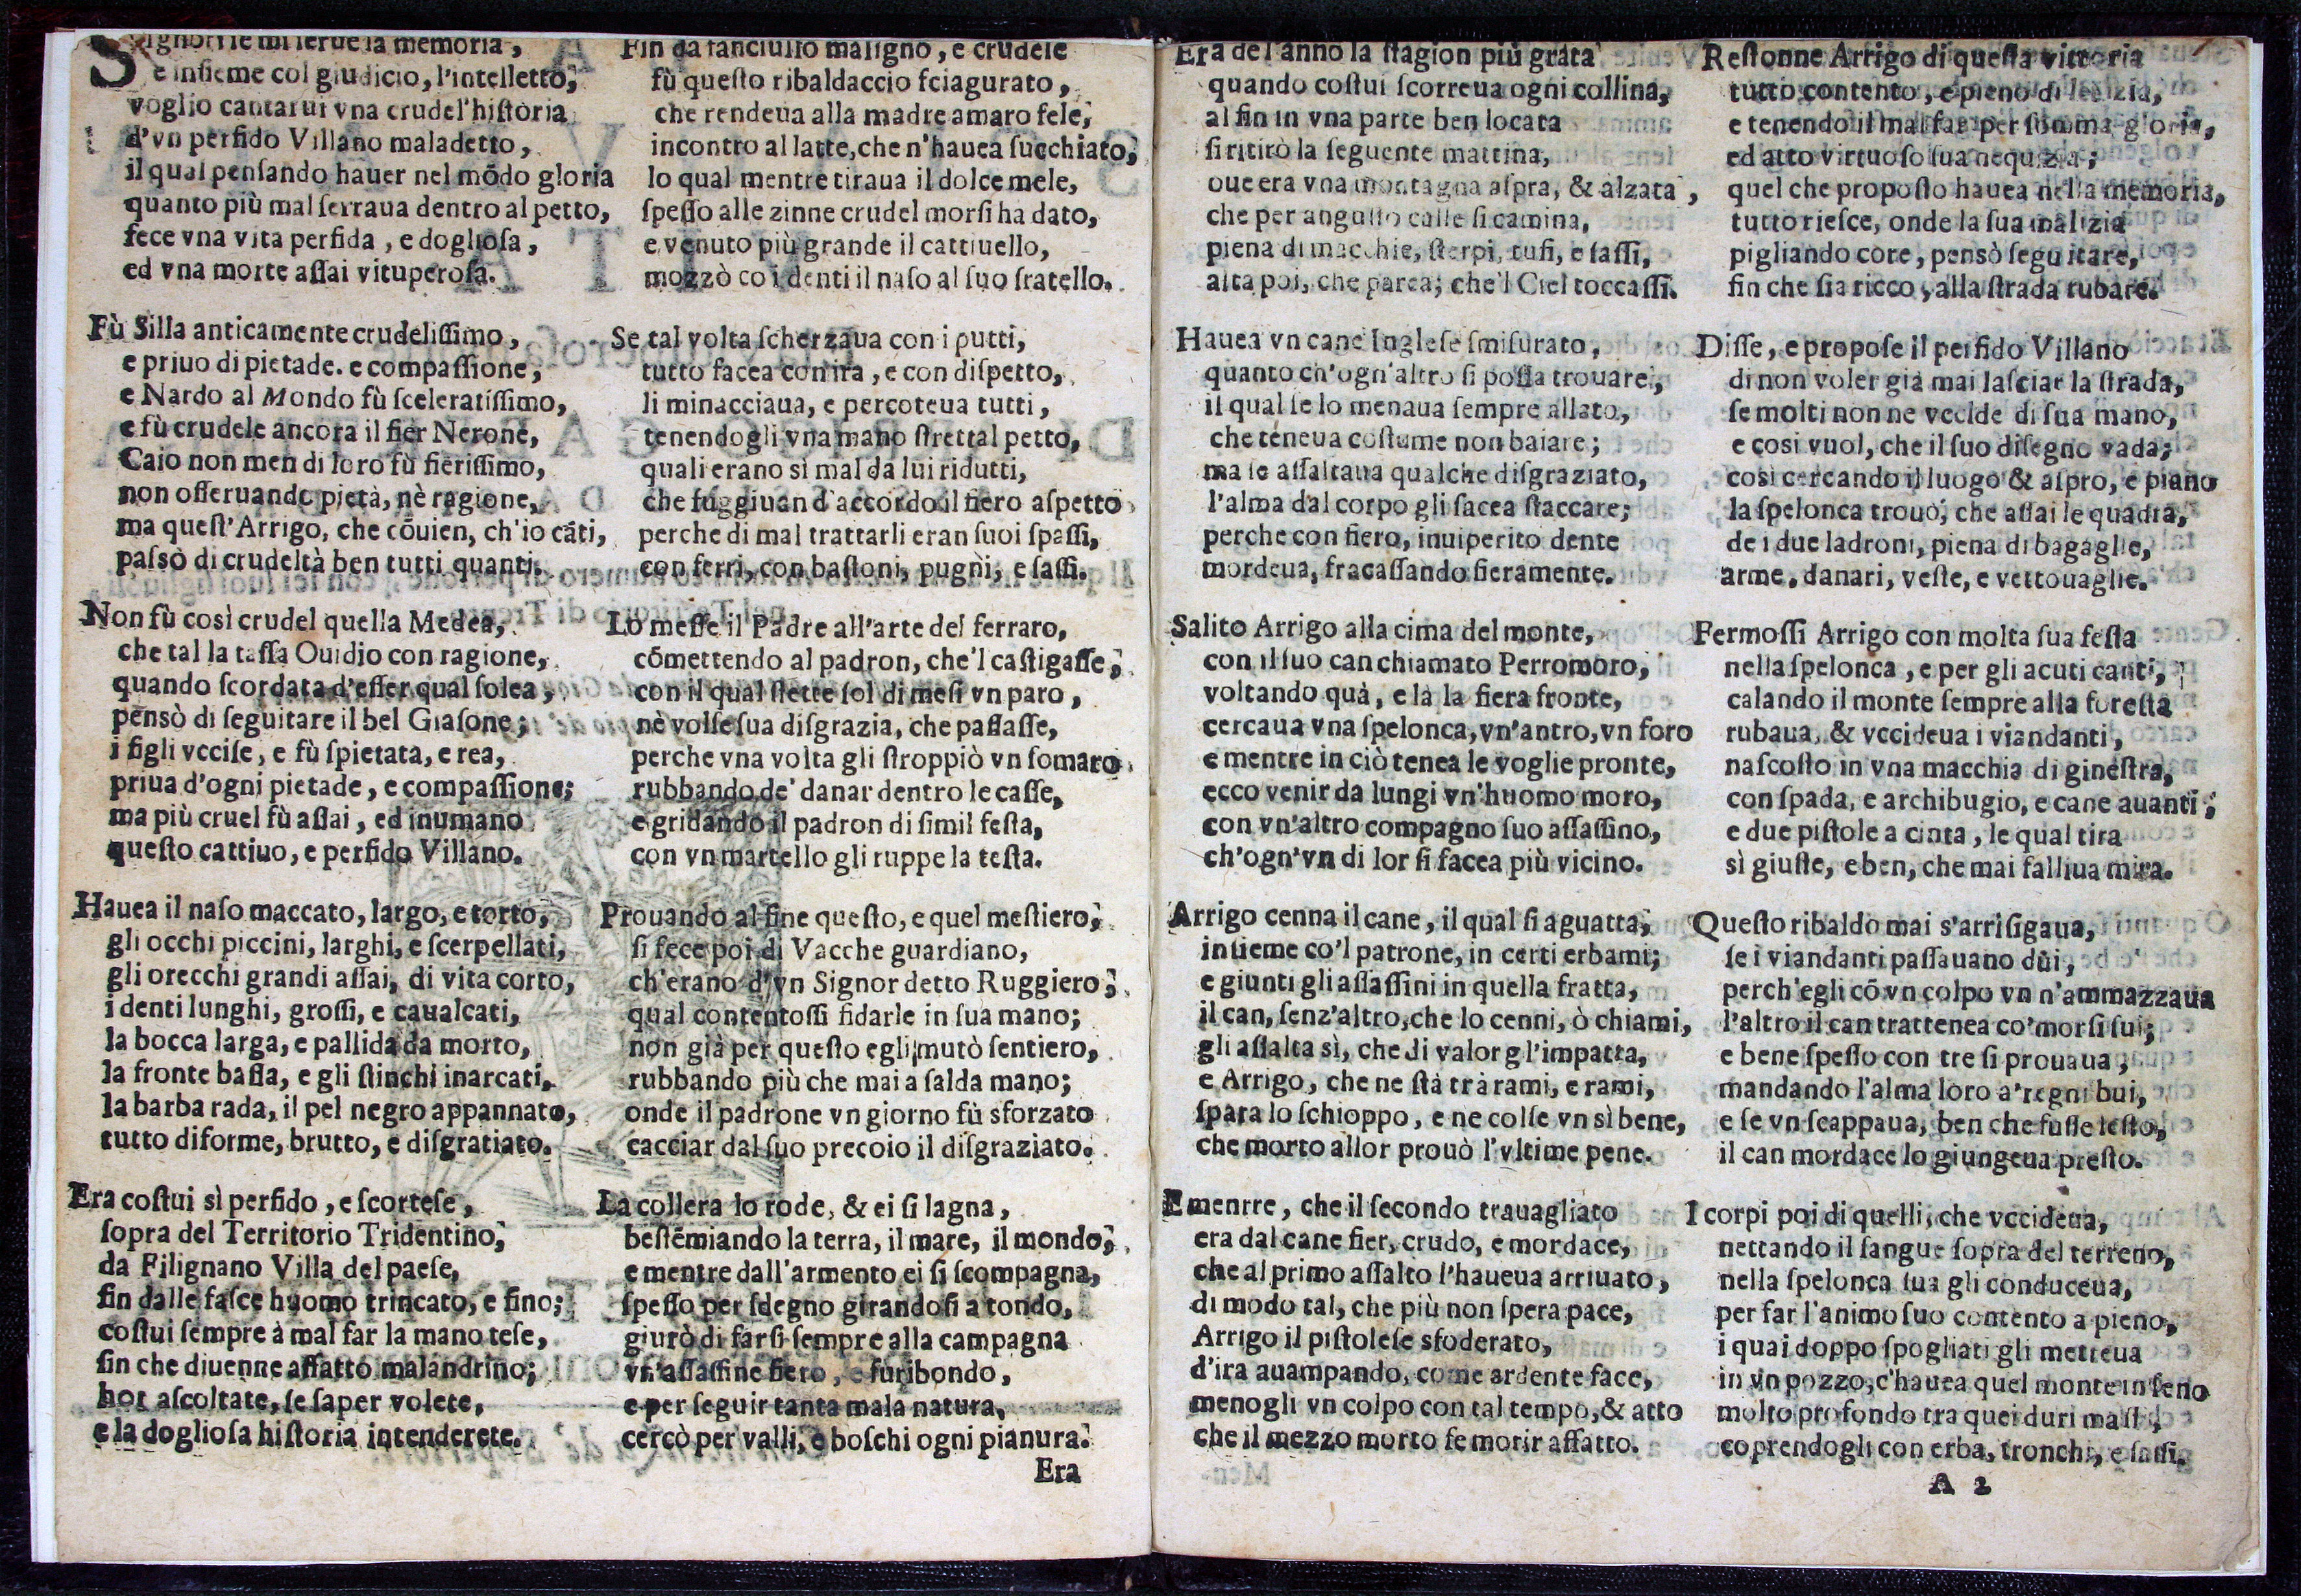 Signori se mi serue la memoria,
e insieme col giudicio, l'intelletto,
voglio cantarui vna crudel'historia
d'vn perfido Villano maladetto,
il qual pensando hauer nel mõdo gloria
quanto più mal serraua dentro al petto,
fece vna vita perfida, e dogliosa,
ed vna morte assai vituperosa.
Fù Silla anticamente crudelissimo,
e priuo di pietade. e compassione,
e Nardo al Mondo fù sceleratissimo,
e fù crudele ancora il fier Nerone,
Caio non men di loro fù fierissimo,
non osseruando pietà, nè ragione,
ma quest'Arrigo, che cõuien, ch'io cãti,
passò di crudeltà ben tutti quanti.
Non fù così crudel quella Medea,
che tal la tassa Ouidio con ragione,
quando scordata d'esser qual solea,
pensò di seguitare il bel Giasone;
i figli vccise, e fù spietata, e rea,
priua d'ogni pietade, e compassione;
ma più cruel fù assai, ed inumano
questo cattiuo, e perfido Villano.
Hauea il naso maccato, largo, e torto,
gli occhi piccini, larghi, e scerpellati,
gli orecchi grandi assai, di vita corto,
i denti lunghi, grossi, e caualcati,
la bocca larga, e pallida da morto,
la fronte bassa, e gli stinchi inarcati,
la barba rada, il pel negro appannato,
tutto diforme, brutto, e disgratiato.
Era costui sì perfido, e scortese,
sopra del Territorio Tridentino,
da Filignano Villa del paese,
fin dalle fasce huomo trincato, e fino;
costui sempre à mal far la mano tese,
fin che diuenne affatto malandrino;
hor ascoltate, se saper volete,
e la dogliosa historia intenderete.
Fin da fanciullo maligno, e crudele
fù questo ribaldaccio sciagurato,
che rendeua alla madre amaro fele,
incontro al latte, che n'hauea succhiato,
lo qual mentre tiraua il dolce mele,
spesso alle zinne crudel morsi ha dato,
e venuto più grande il cattiuello,
mozzò co i denti il naso al suo fratello.
Se tal volta scherzaua con i putti,
tutto facea con ira, e con dispetto,
li minacciaua, e percoteua tutti,
tenendogli vna mano strettal petto,
quali erano sì mal da lui ridutti,
che fuggiuan d'accordo il fiero aspetto
perche di mal trattarli eran suoi spassi,
con ferri, con bastoni, pugni, e sassi.
Lo messe il Padre all'arte del ferraro,
cõmettendo al padron, che'l castigasse,
con il qual stette sol di mesi vn paro,
nè volse sua disgrazia, che passasse,
perche vna volta gli stroppiò vn somaro
rubbando de' danar dentro le casse,
e gridando il padron di simil festa,
con vn martello gli ruppe la testa.
Prouando al fine questo, e quel mestiero,
si fece poi di Vacche guardiano,
ch'erano d'vn Signor detto Ruggiero;
qual contentossi fidarle in sua mano;
non già per questo egli mutò sentiero,
rubbando più che mai a salda mano;
onde il padrone vn giorno fù sforzato
cacciar dal suo precoio il disgraziato.
La collera lo rode, & ei si lagna,
bestẽmiando la terra, il mare, il mondo,
e mentre dall'armento ei si scompagna,
spesso per sdegno girandosi a tondo,
giurò di farsi sempre alla campagna
vn'assassine fiero, e furibondo,
e per seguir tanta mala natura,
cercò per valli, e boschi ogni pianura.
Era
Era del anno la stagion più grata
quando costui scorreua ogni collina,
al fin in vna parte ben locata
si ritirò la seguente mattina,
oue era vna montagna aspra, & alzata,
che per angusto calle si camina,
piena di macchie, sterpi, tufi, e sassi,
alta poi, che parea; che'l Ciel toccassi.
Hauea vn cane Inglese smisurato,
quanto ch'ogn'altro si possa trouare,
il qual se lo menaua sempre allato,
che teneua costume non baiare;
ma se assaltaua qualche disgraziato,
l'alma dal corpo gli facea staccare;
perche con fiero, inuiperito dente
mordeua, fracassando fieramente.
Salito Arrigo alla cima del monte,
con il suo can chiamato Perromoro,
voltando quà, e là la fiera fronte,
cercaua vna spelonca, vn'antro, vn foro
e mentre in ciò tenea le voglie pronte,
ecco venir da lungi vn'huomo moro,
con vn'altro compagno suo assassino,
ch'ogn'vn di lor si facea più vicino.
Arrigo cenna il cane, il qual si aguatta,
insieme co'l patrone, in certi erbami;
e giunti gli assassini in quella fratta,
il can, senz'altro, che lo cenni, ò chiami,
gli assalta sì, che di valor gl'impatta,
e Arrigo, che ne stà trà rami, e rami,
spara lo schioppo, e ne colse vn sì bene,
che morto allor prouò l'vltime pene.
E menrre, che il secondo trauagliato
era dal cane fier, crudo, e mordace,
che al primo assalto l'haueua arriuato,
di modo tal, che più non spera pace,
Arrigo il pistolese sfoderato,
d'ira auampando, come ardente face,
menogli vn colpo con tal tempo, & atto
che il mezzo morto fe morir affatto.
Restonne Arrigo di questa vittoria
tutto contento, e pieno di letizia,
e tenendo il mal far per somma gloria,
ed atto virtuoso sua nequizia;
quel che proposto hauea nella memoria,
tutto riesce, onde la sua malizia
pigliando core, pensò seguitare,
fin che sia ricco, alla strada rubare.
Disse, e propose il perfido Villano
di non voler già mai lasciar la strada,
se molti non ne vccide di sua mano,
e così vuol, che il suo disegno vada;
così cercando il luogo & aspro, e piano
la spelonca trouò, che assai le quadra,
de i due ladroni, piena di bagaglie,
arme, danari, veste, e vettouaglie.
Fermossi Arrigo con molta sua festa
nella spelonca, e per gli acuti canti,
calando il monte sempre alla foresta
rubaua, & vccideua i viandanti,
nascosto in vna macchia di ginestra,
con spada, e archibugio, e cane auanti;
e due pistole a cinta, le qual tira
sì giuste, e ben, che mai falliua mira.
Questo ribaldo mai s'arrisigaua,
se i viandanti passauano dùi,
perch'egli cõ vn colpo vn n'ammazzaua
l'altro il can trattenea co'morsi sui;
e bene spesso con tre si prouaua,
mandando l'alma loro a'regni bui,
e se vn scappaua, ben che fusse lesto,
il can mordace lo giungeua presto.
I corpi poi di quelli, che vccideua,
nettando il sangue sopra del terreno,
nella spelonca sua gli conduceua,
per far l'animo suo contento a pieno,
i quai doppo spogliati gli metteua
in vn pozzo, c'hauea quel monte in seno
molto profondo tra quei duri massi,
coprendogli con erba, tronchi, e sassi.
A 2